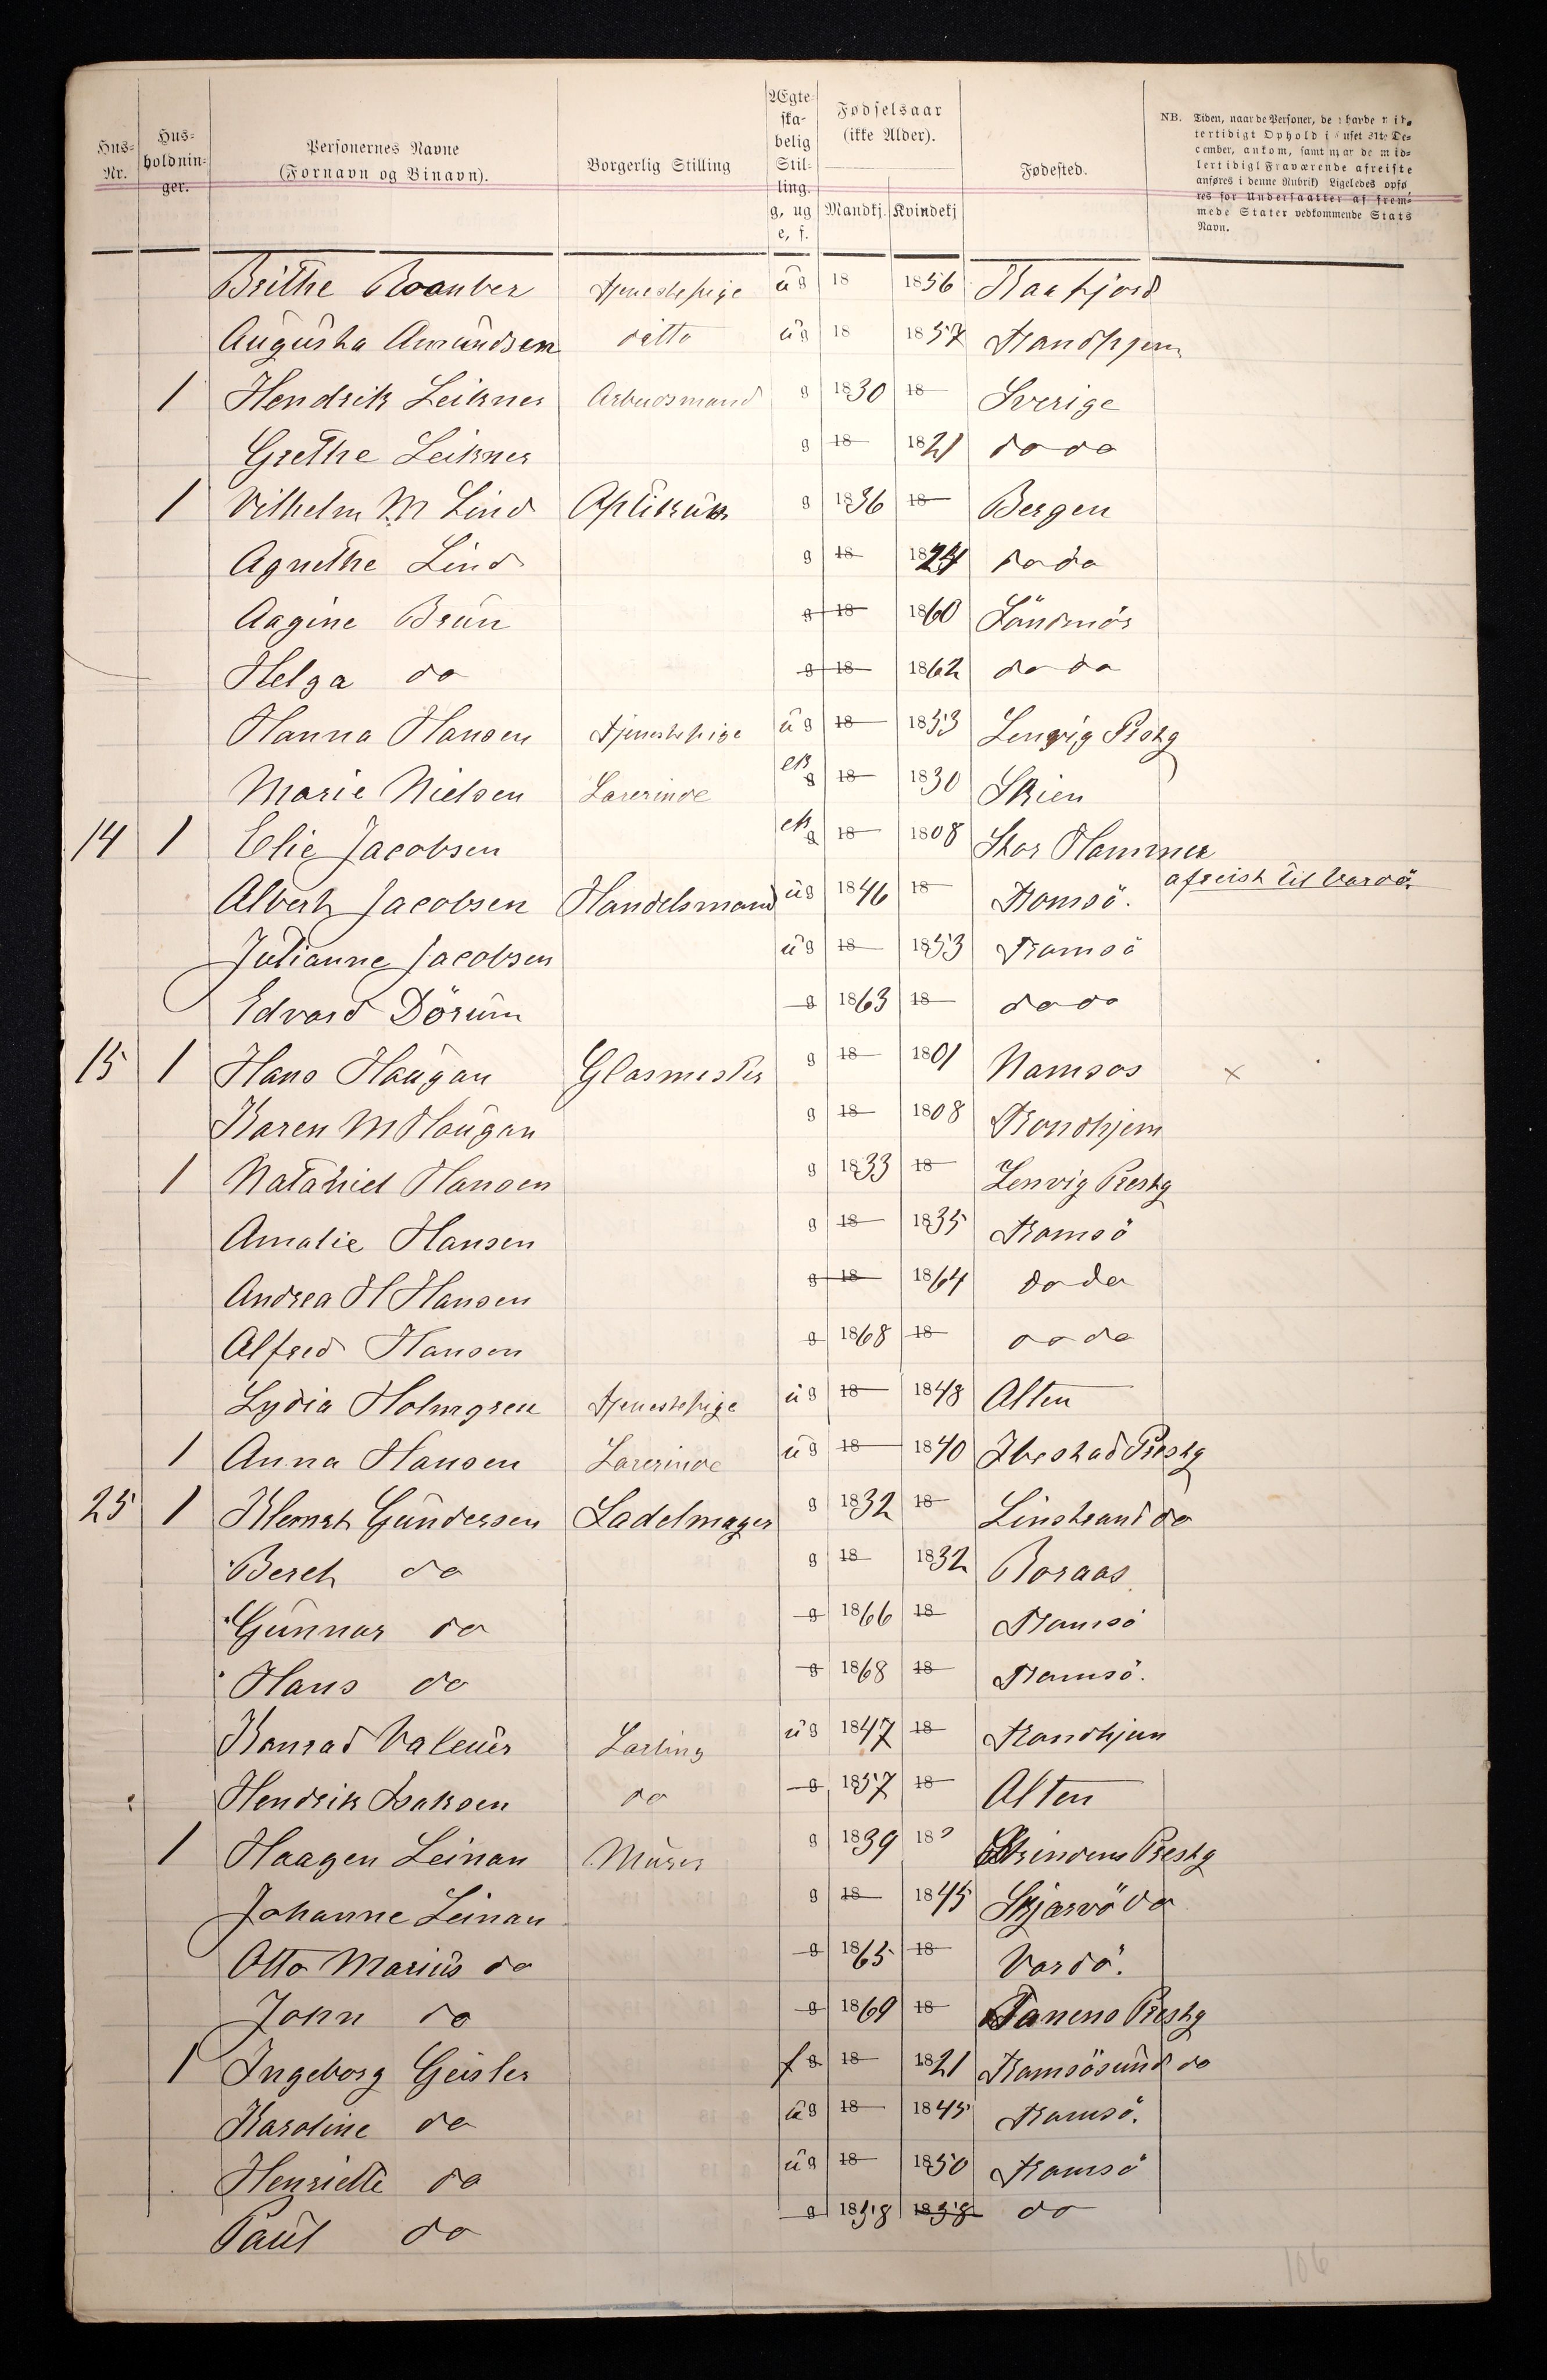 Hus-Nr. Hus-holdnin-ger. Personernes Navne (Fornavn og Binavn). Borgerlig Stilling Ægte-ska-belig Stil-ling. g, ug e, f. Fødselsaar (ikke Alder). Mandkj. Kvindekj Fødested.
NB. Tiden, naar de Personer, de
Brithe tjenestepige ug 18 1856 Kaafjord
Augusta Amundsen ditto ug 18 1857 Trondhjem
1 Hendrik Leiknes Arbeidsmand g 1830 18 Sverige
Grethe Leiknes g 18 1821 do do
1 Vilhelm M Lind g 1836 18 Bergen
Agnethe Lind g 18 1824 do do
Aagine Brun g 18 1860 Söndmör
Helga do g 18 1862 do do
Hanna Hansen tjenestepige ug 18 1853 Lenvig Prstg
Marie Nielsen Lærerinde ek g 18 1830 Skien
14 1 Elie Jacobsen ek g 18 1808 Stor Hammer
Albert Jacobsen Handelsmand ug 1846 18 Tromsö. afreist til Vardö
Julianne Jacobsen ug 18 1853 Tromsö
Edvard Dörum g 1863 18 do do
15 1 Hans Haugan Glasmester g 18 1801 Namsos x
Karen M Haugan g 18 1808 Trondhjem
1 Nataniel Hansen g 1833 18 Lenvig Prestg
Amalie Hansen g 18 1835 Tromsö
Andrea H Hansen g 18 1864 do do
Alfred Hansen g 1868 18 do do
Lydia Holmgren tjenestepige ug 18 1848 Alten
1 Anna Hansen Lærerinde ug 18 1840 Ibestad Prestg
25 1 Klemet Gundersen Sadelmager g 1832 18 Linstrand do
Beret do g 18 1832 Roraas
Gunnar do g 1866 18 Tromsö
Hans do g 1868 18 Tromsö.
Konrad Valeur Lærling ug 1847 18 Trondhjem
Hendrik Isaksen do g 1857 18 Alten
1 Haagen Leinan Murer g 1839 18 Strindens Prestg
Johanne Leinan g 18 1845 Skjærvö do
Otto Marius do g 1865 18 Vardö.
John do g 1869 18 Tanens Prestg
1 Ingeborg Geisler f g 18 1821 Tromsösund do
Karoline do ug 18 1845 Tromsö.
Henriette do ug 18 1850 Tromsö
Paul do g 1858 1858 do
106